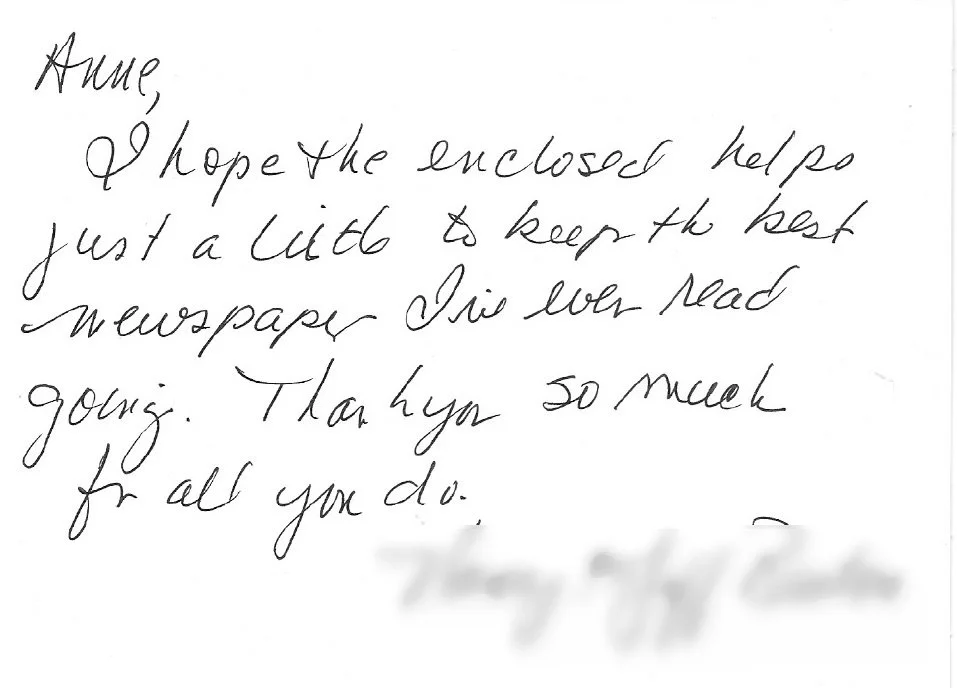 Anne,
I hope the enclosed helps
just a little to keep the best
newspaper I've ever read
going. Thank you so much
for all you do.